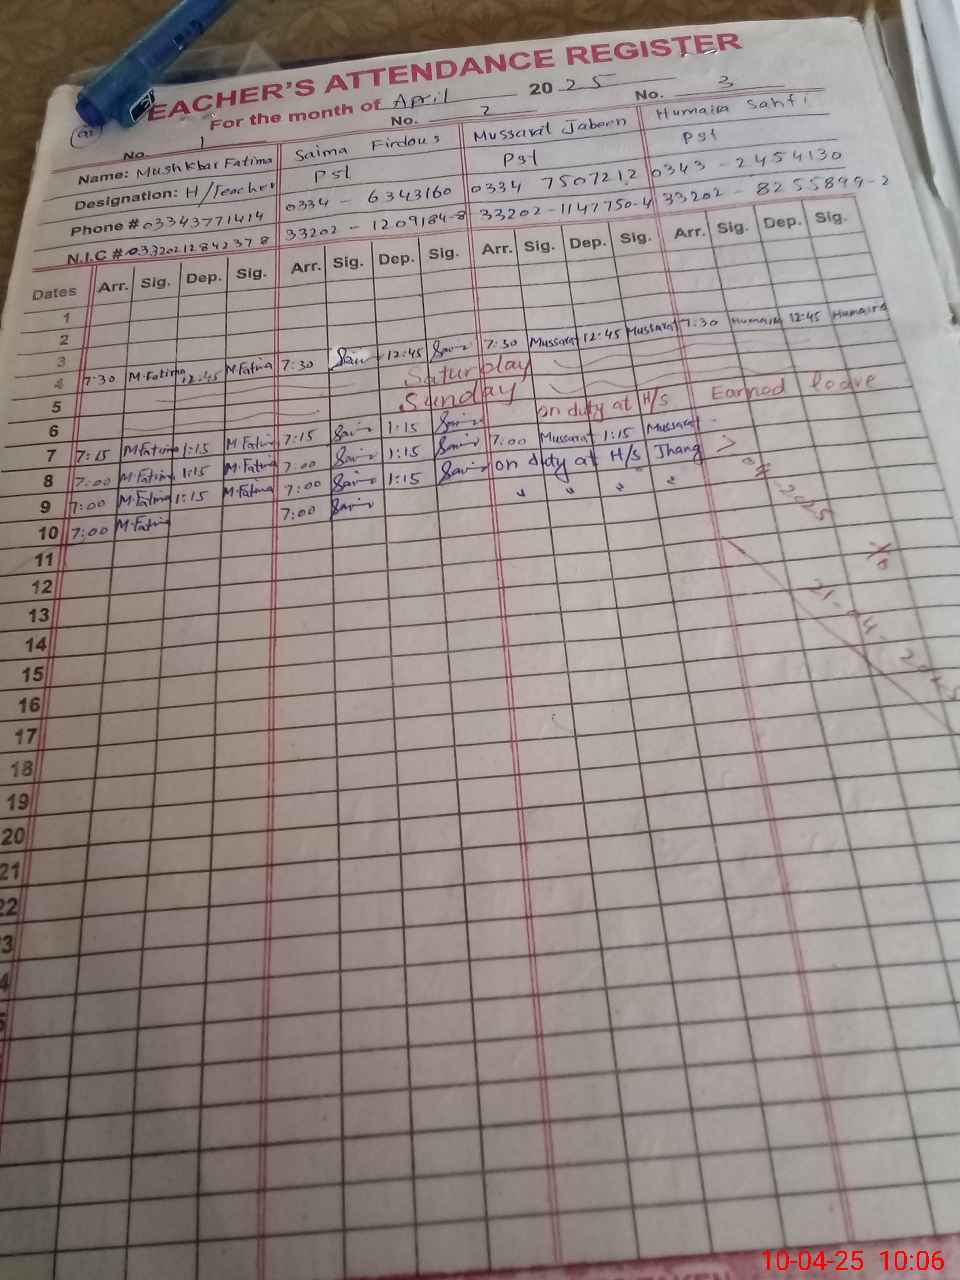 EACHER'S ATTENDANCE REGISTER
For the month of April 2025
No. 1 No. 2 No. 3
Name: Mushkbar Fatima Saima Firdous Mussarat Jabeen Humaira
Designation: H/Teacher Pst Pst Pst
Phone # 03343771414 0334 - 6343160 0334 7507212 0343 - 2454130
N.I.C # 33202 - 1209184-8 33202-1147750-4 33202 - 8255899-2
Dates Arr. Sig. Dep. Sig. Arr. Sig. Dep. Sig. Arr. Sig. Dep. Sig. Arr. Sig. Dep. Sig.
1
2
3
4 7:30 M.Fatima 12:45 M.Fatima 7:30 12:45 7:30 Mussarat 12:45 Mussarat 7:30 Humaira 12:45 Humaira
5 Saturday
6 Sunday
7 7:15 M.Fatima 1:15 M.Fatima 7:15 1:15 on duty at H/S Earned leave
8 7:00 M.Fatima 1:15 M.Fatima 7:00 1:15 7:00 Mussarat 1:15 Mussarat
9 7:00 M.Fatima 1:15 M.Fatima 7:00 1:15 on duty at H/S Jhang
10 7:00 M.Fatima 7:00
11
12
13
14
15
16
17
18
19
20
21
22
3
4
To
10-04-25 10:06